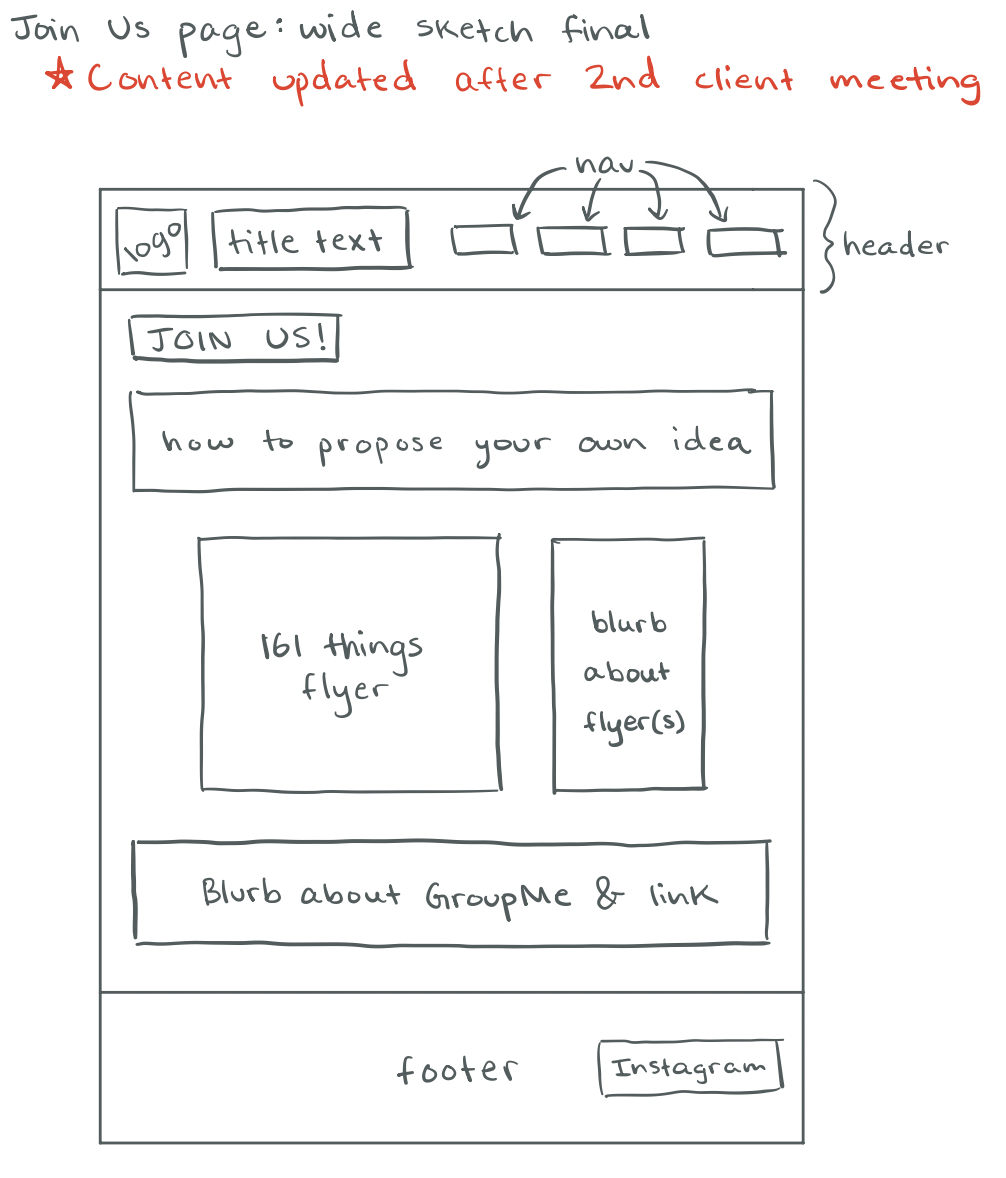 Join Us page: wide sketch final
☆ Content updated after 2nd client meeting
nav
logo
title text
header
JOIN US!
how to propose your own idea
161 things
flyer
blurb
about
flyer(s)
Blurb about GroupMe & link
footer
Instagram